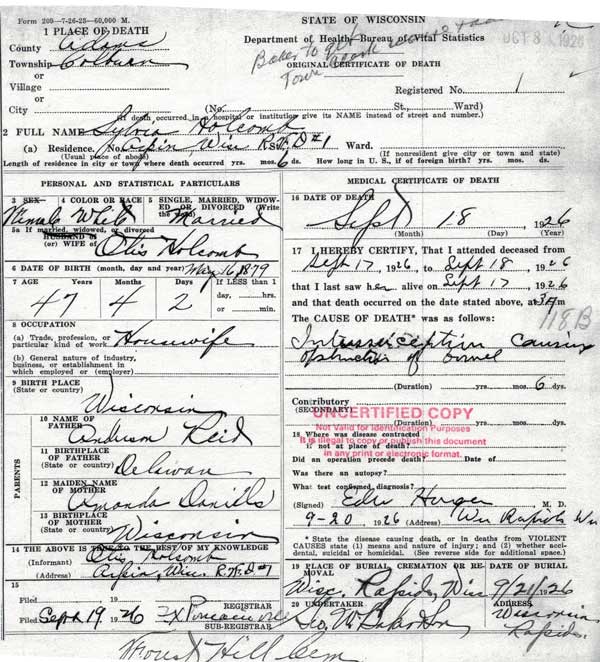 Form 200—7-26-25—60,000 M.
STATE OF WISCONSIN
Department of Health—Bureau of Vital Statistics
ORIGINAL CERTIFICATE OF DEATH
OCT 8 1926
1 PLACE OF DEATH
County Adams
Township Colburn
or
Village
or
City
Registered No. 1
(No. St., Ward)
(If death occurred in a hospital or institution give its NAME instead of street and number.)
2 FULL NAME Sylvia Holcomb
(a) Residence. No. Arpin Wis R.F.D #1 St., Ward.
(Usual place of abode) (If nonresident give city or town and state)
Length of residence in city or town where death occurred yrs. mos. 6 ds. How long in U. S., if of foreign birth? yrs. mos. ds.
PERSONAL AND STATISTICAL PARTICULARS
3 SEX Female
4 COLOR OR RACE White
5 SINGLE, MARRIED, WIDOWED OR DIVORCED (Write the word) Married
5a If married, widowed, or divorced
HUSBAND of
(or) WIFE of Otis Holcomb
6 DATE OF BIRTH (month, day and year) May 16 1879
7 AGE Years Months Days If LESS than 1 day, hrs. or min.
47 4 2
8 OCCUPATION
(a) Trade, profession, or particular kind of work Housewife
(b) General nature of industry, business, or establishment in which employed or (employer)
9 BIRTH PLACE
(State or country) Wisconsin
PARENTS
10 NAME OF FATHER Anderson Reid
11 BIRTHPLACE OF FATHER
(State or country) Delawan
12 MAIDEN NAME OF MOTHER Amanda Daniells
13 BIRTHPLACE OF MOTHER
(State or country) Wisconsin
14 THE ABOVE IS TRUE TO THE BEST OF MY KNOWLEDGE
(Informant) Otis Holcomb
(Address) Arpin, Wisc. R.F.D #1
15
Filed , 19 REGISTRAR
Filed Sept 19 1926
SUB-REGISTRAR
MEDICAL CERTIFICATE OF DEATH
16 DATE OF DEATH
Sept 18, 1926
(Month) (Day) (Year)
17 I HEREBY CERTIFY, That I attended deceased from
Sept 17, 1926, to Sept 18, 1926
that I last saw her alive on Sept 17, 1926
and that death occurred on the date stated above, at 3 A m
The CAUSE OF DEATH* was as follows:
118B
Intussusception causing
obstruction of bowel
(Duration) yrs. mos. 6 dys.
Contributory
(SECONDARY)
(Duration) yrs. mos. dys.
UNCERTIFIED COPY
Not Valid for Identification Purposes
It is illegal to copy or publish this document
in any print or electronic format.
18 Where was disease contracted
if not at place of death?
Did an operation precede death? Date of
Was there an autopsy?
What test confirmed diagnosis?
(Signed) M. D.
9-20, 1926 (Address) Wis Rapids Wis
* State the disease causing, or in deaths from VIOLENT CAUSES state (1) means and nature of injury; and (2) whether accidental, suicidal or homicidal. (See reverse side for additional space.)
19 PLACE OF BURIAL, CREMATION OR REMOVAL
Wisc. Rapids, Wis
DATE OF BURIAL
9/21/1926
20 UNDERTAKER
Geo. W. Baker & Son
ADDRESS
Wisconsin Rapids.
Forest Hill Cem